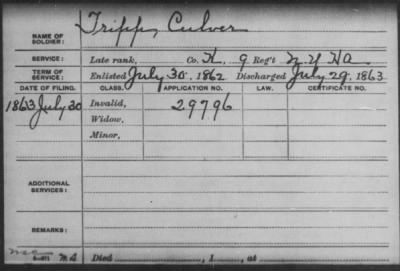 NAME OF SOLDIER: Tripp, Culver
SERVICE: Late rank, Co. K, 9 Reg't N.Y. H.A.
TERM OF SERVICE: Enlisted July 30, 1862 Discharged July 29, 1863
DATE OF FILING. CLASS. APPLICATION NO. LAW. CERTIFICATE NO.
1863 July 30 Invalid, 29796
Widow,
Minor,
ADDITIONAL SERVICES:
REMARKS:
Died , 1 , at